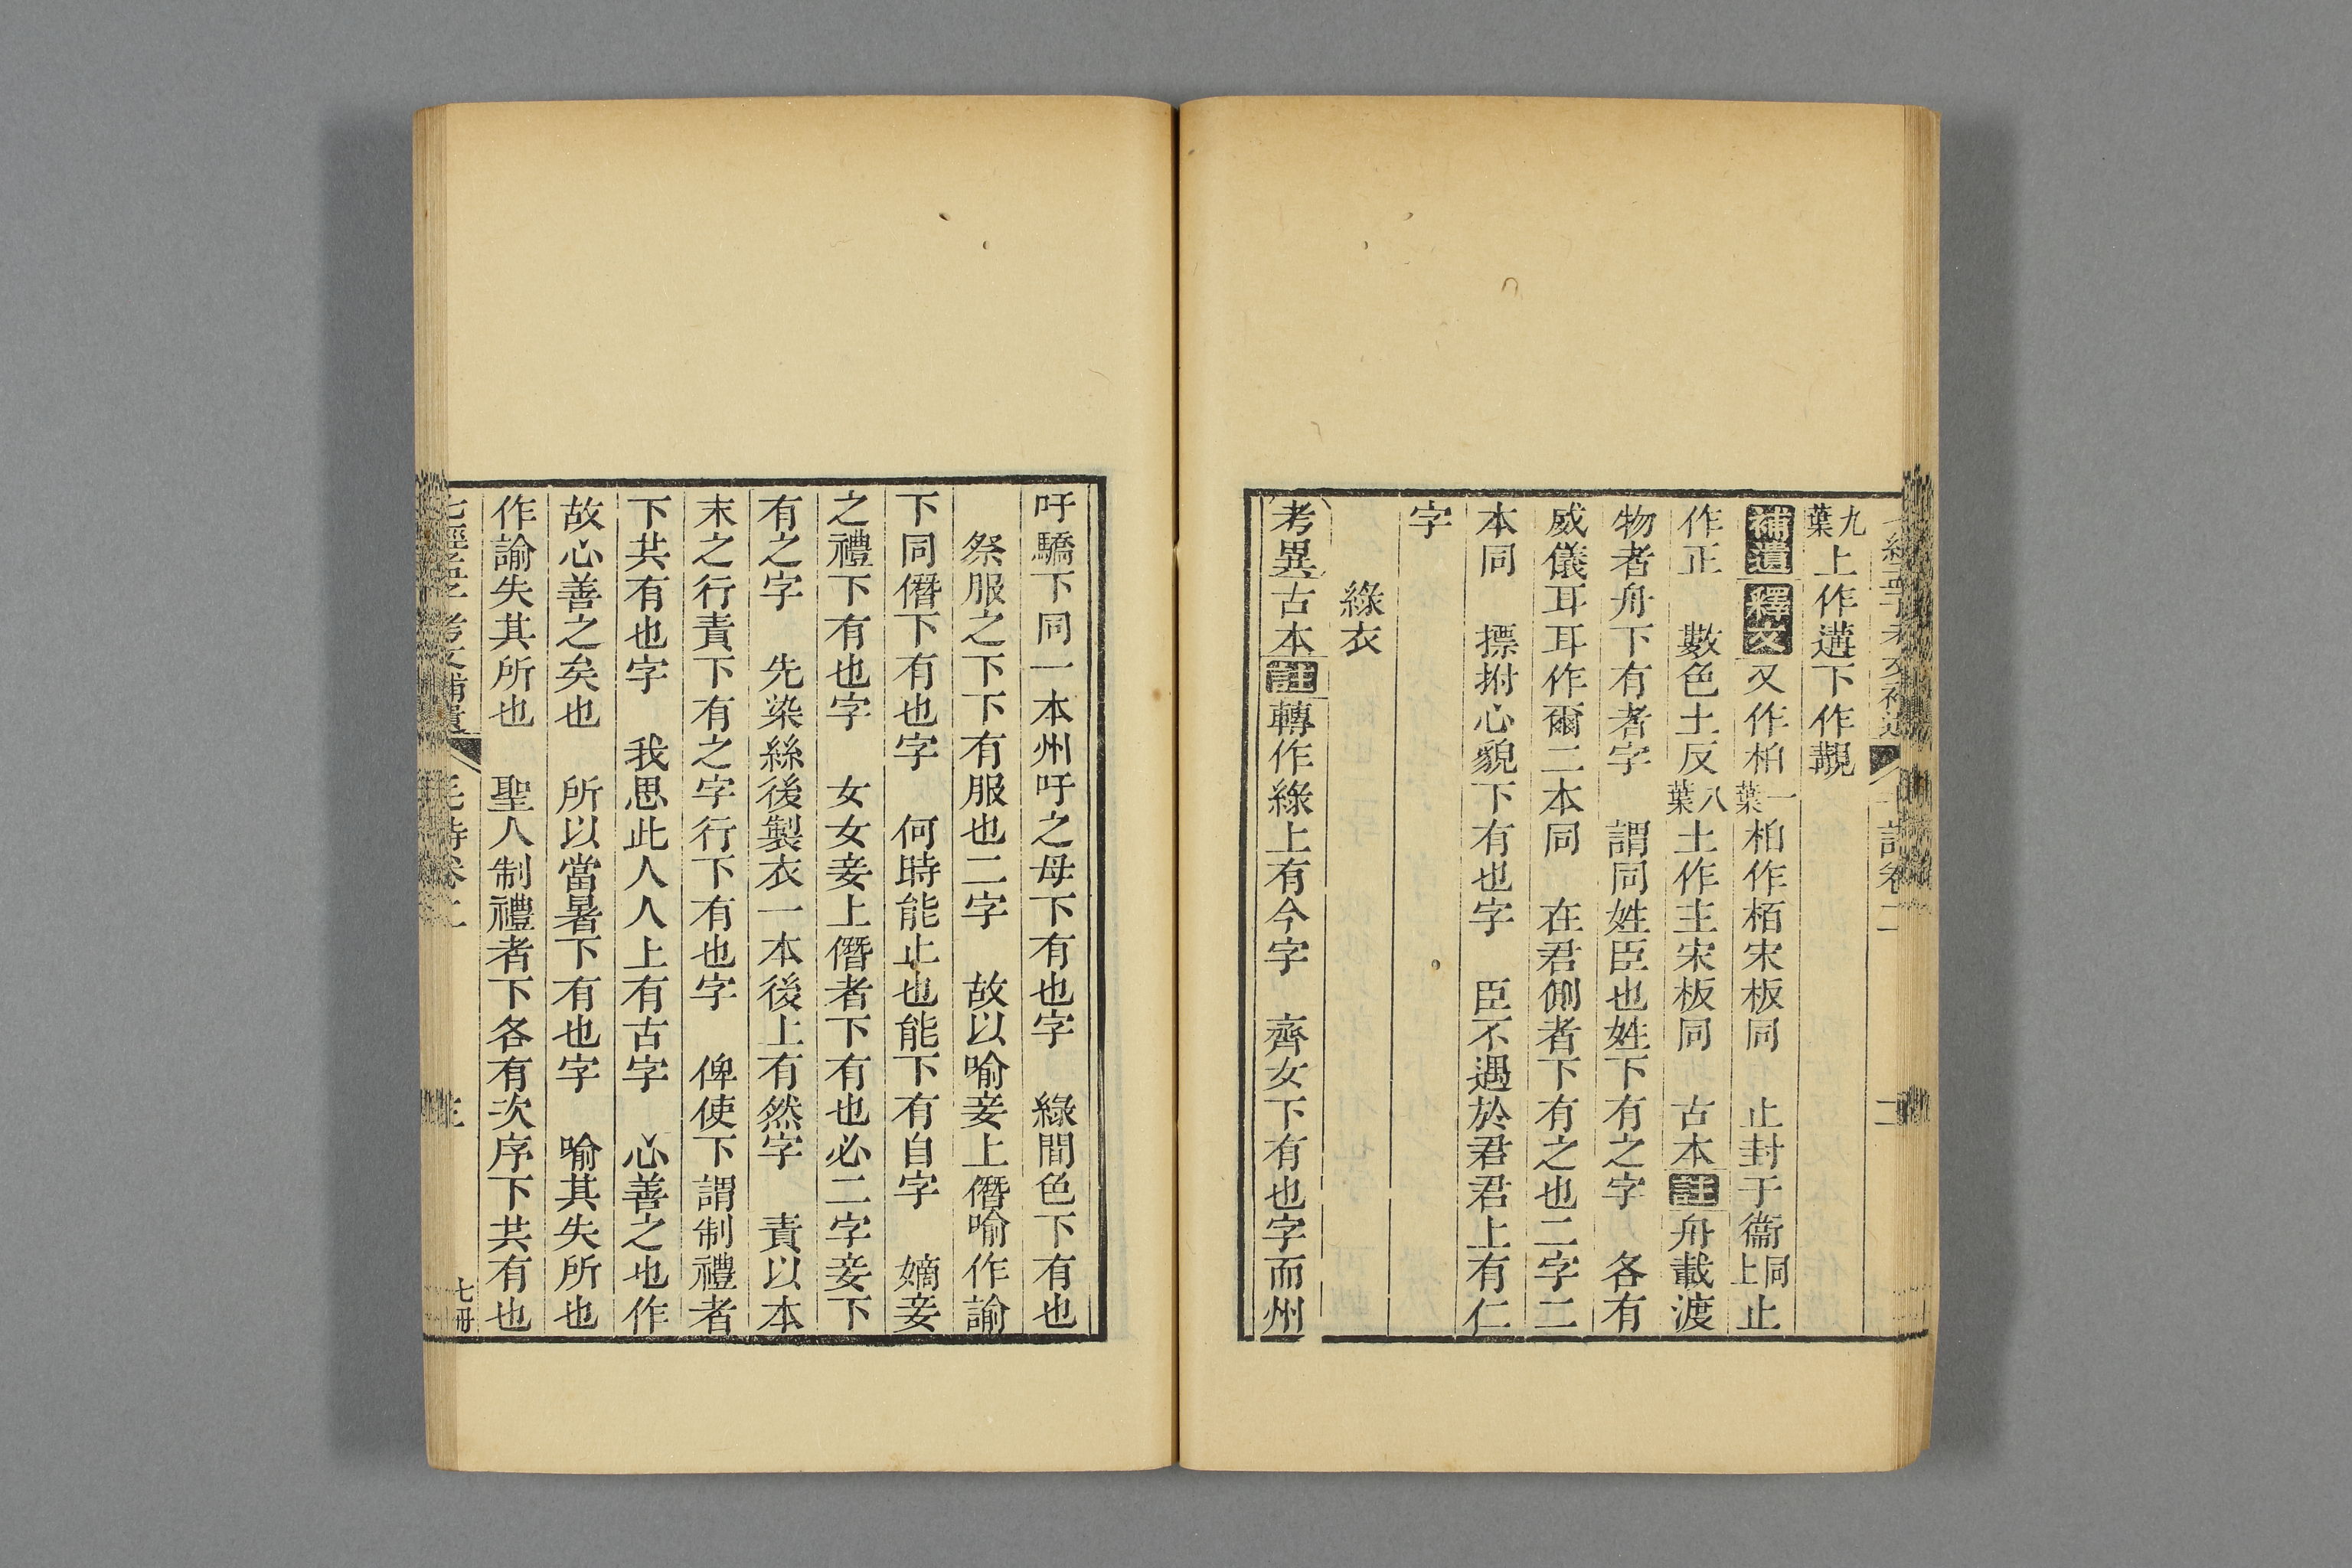 七經孟子考文補遺　毛詩卷二　二
九葉上作遘下作覯
補遺　釋文　又作柏一葉柏作栢宋板同　止封于衞同上止
作正　數色土反八葉土作主宋板同　古本　註　舟載渡
物者舟下有者字　謂同姓臣也姓下有之字　各有
威儀耳耳作爾二本同　在君側者下有之也二字二
本同　摽拊心貌下有也字　臣不遇於君君上有仁
字
綠衣
考異古本　註　轉作綠上有今字　齊女下有也字而州
吁驕下同一本州吁之母下有也字　綠間色下有也
祭服之下下有服也二字　故以喻妾上僭喻作諭
下同僭下有也字　何時能止也能下有自字　嫡妾
之禮下有也字　女女妾上僭者下有也必二字妾下
有之字　先染絲後製衣一本後上有然字　責以本
末之行責下有之字行下有也字　俾使下謂制禮者
下共有也字　我思此人人上有古字　心善之也作
故心善之矣也　所以當暑下有也字　喻其失所也
作諭失其所也　聖人制禮者下各有次序下共有也
七經孟子考文補遺　毛詩卷二　三　七冊